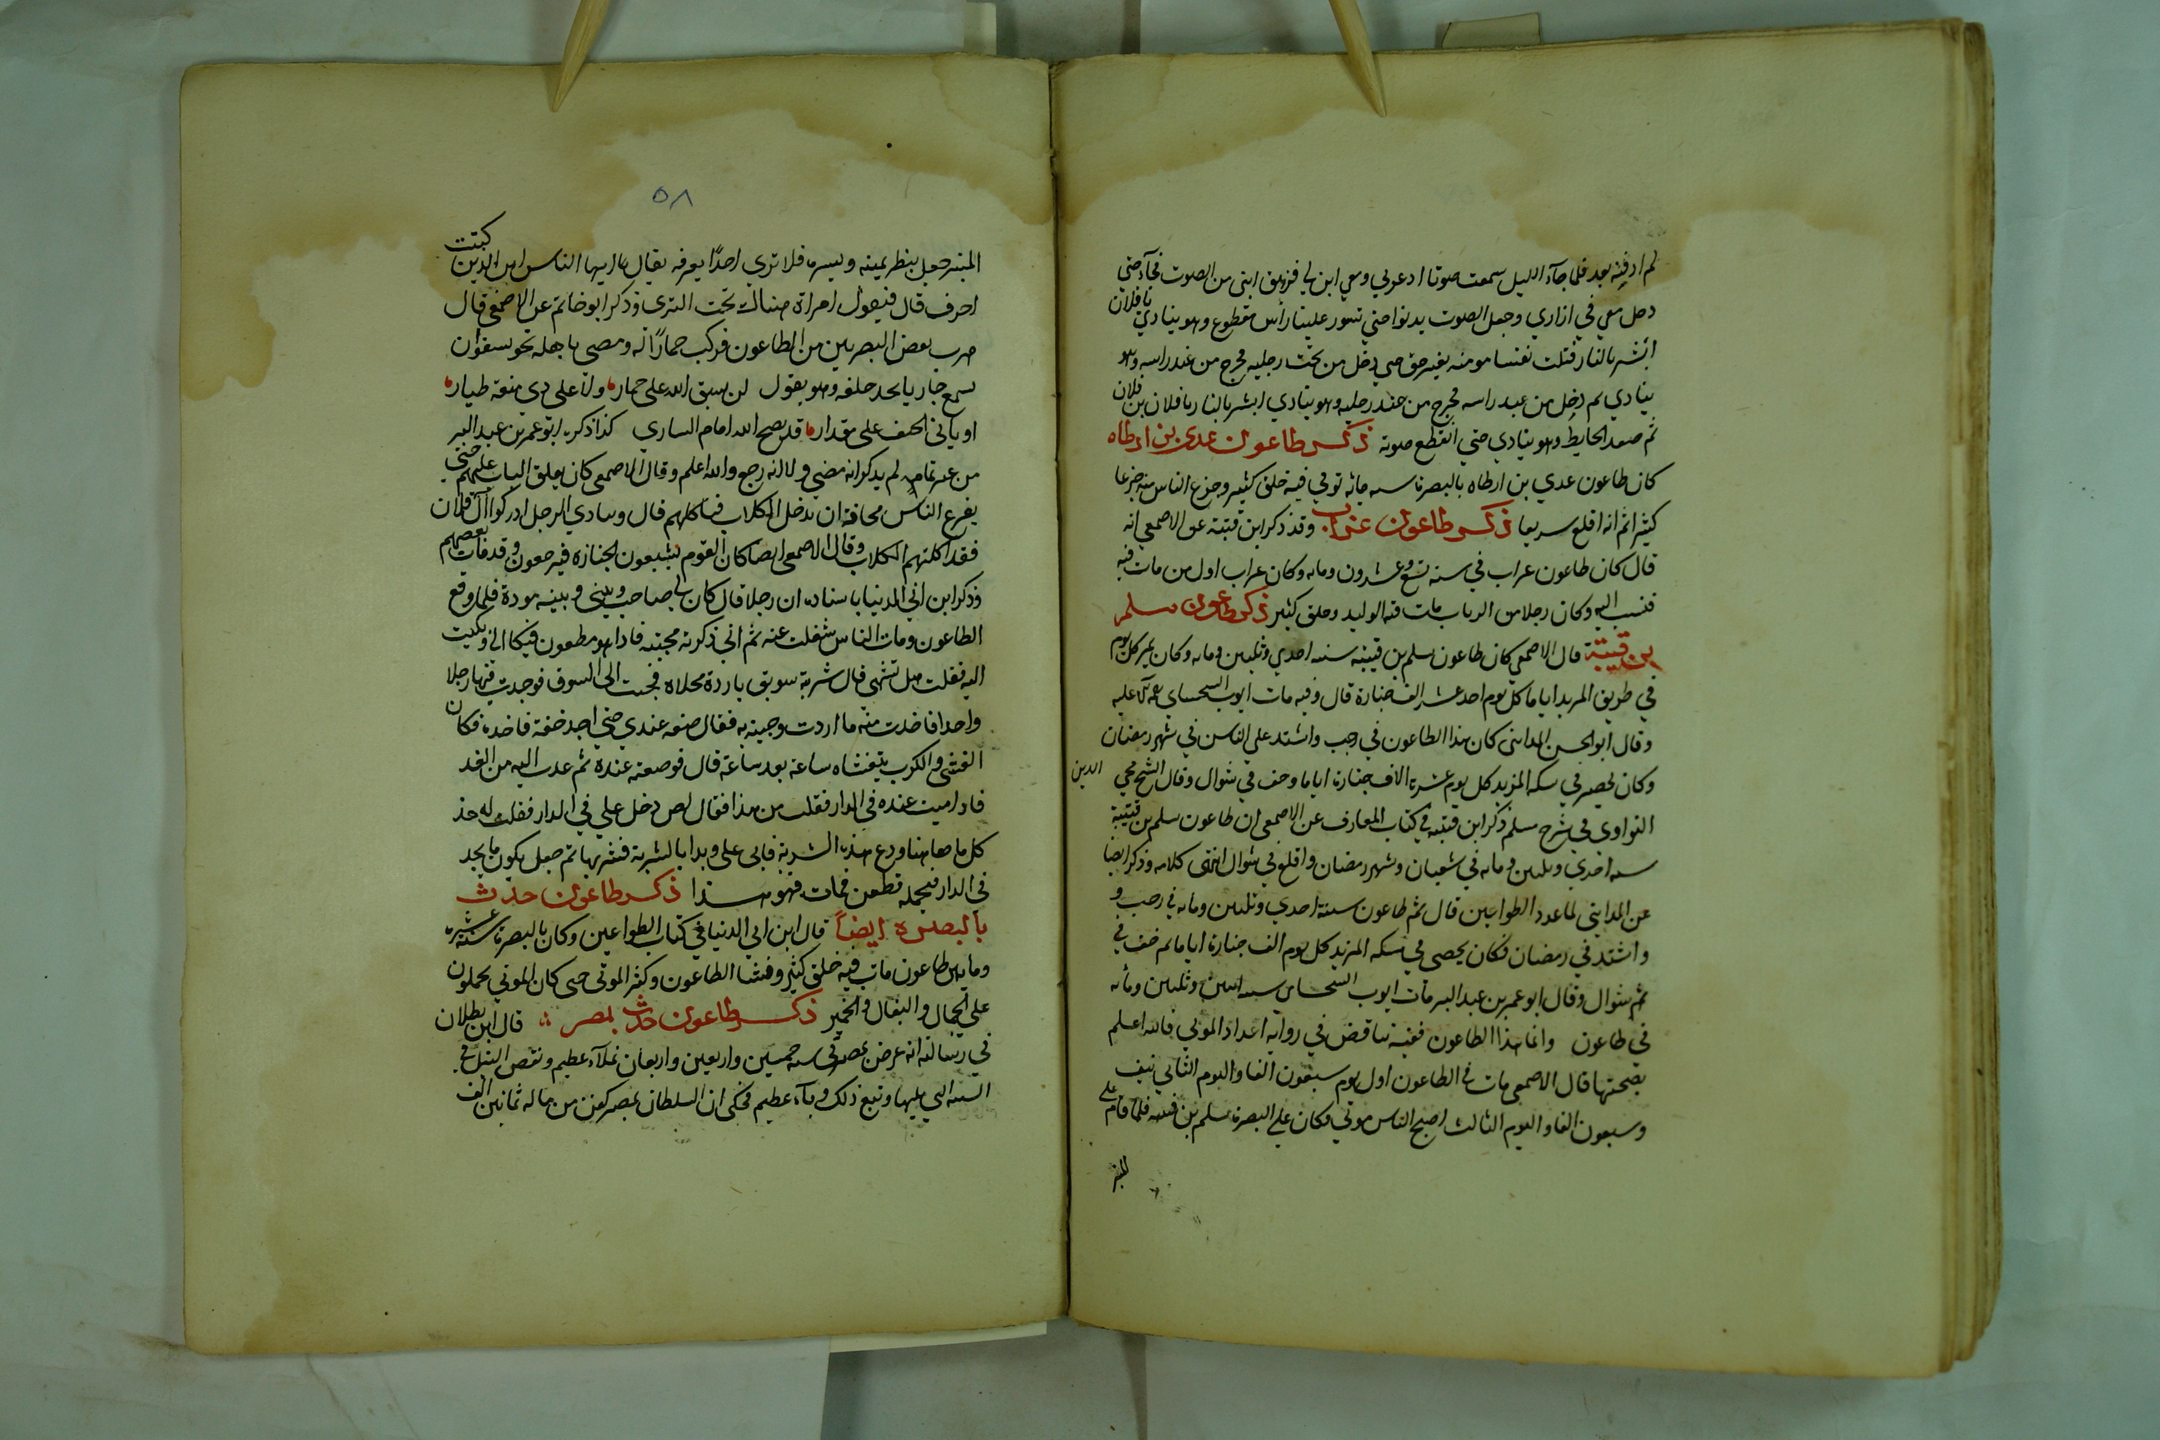 لم ادفنه بعد فلما جآء الليل سمعت صوتا ادعوبي ومعي ابن لي فزهق ابني من الصوت فجآء حتي
دخل معي في ازاري وجعل الصوت يدنوا حتي تسور علينا رأس مقطوع وهو ينادي يا فلان
ابشر بالنار قتلت نفسا مومنه بغير حق حتي دخل من تحت رجليه فخرج من عند راسه وهو
ينادي ثم دخل من عند راسه فخرج من عند رجليه وهو ينادي ابشر بالنار يا فلان بن فلان
ثم صعد الحايط وهو ينادي حتي انقطع صوته ذكر طاعون عدي بن ارطاه
كان طاعون عدي بن ارطاه بالبصرة سنه مائه توفي فيه خلق كثير وجزع الناس منه جزعا
كثيرا ثم انه اقلع سريعا ذكر طاعون غراب وقد ذكر ابن قتيبة عن الاصمعي انه
قال كان طاعون غراب في سنه تسع وعشرون ومايه وكان غراب اول من مات فيه
فنسب اليه وكان رجلا من الرباب مات فيه الوليد وخلق كثير ذكر طاعون مسلم
بن قتيبة قال الاصمعي كان طاعون سلم بن قتيبه سنه احدي وثلثين ومايه وكان يمر كل يوم
في طريق المربد اياما كل يوم احد عشر الف جنازة قال وفيه مات ايوب السحساي رحمه الله عليه
وقال ابو الحسن المدايني كان هذا الطاعون في رجب واشتد علي الناس في شهر رمضان
وكان يحصر في سكه المربد كل يوم عشرة الاف جنازة اياما وخف في شوال وقال الشيخ محي الدين
النواوي في شرح مسلم ذكر ابن قتيبه في كتاب المعارف عن الاصمعي ان طاعون سلم بن قتيبة
سنه احدي وثلثين ومايه في شعبان وشهر رمضان واقلع في شوال انتهى كلامه وذكر ايضا
عن المدايني لما عدد الطواعين قال ثم طاعون سنة احدي وثلثين ومايه في رجب و
واشتد في رمضان فكان يحصى في سكه المربد كل يوم الف جنازة اياما ثم خف في
ثم شوال وقال ابو عمر بن عبد البر مات ايوب السحاس سنه اثنين وثلثين ومائه
في طاعون وانما هذا الطاعون فغيه تناقض في روايه اعداد الموتي فالله اعلم
بصحتها قال الاصمعي مات في الطاعون اول يوم سبعون الفا واليوم الثاني نيف
وسبعون الفا واليوم الثالث اصبح الناس موتي وكان علي البصرة سلم بن قتيبه فلما قام علي
المنبر
٥٨
المنبر جعل ينظر يمينه ويسيره فلا تري احدًا يعرفه يقال يا ايها الناس اين الذين كبتت
احرف قال فيقول امراة هنالك تحت الثري وذكر ابو حاتم عن الاصمعي قال
هرب بعض البصريين من الطاعون فركب حمارًا له ومضي باهله نحو سفوان
سمع جاريا يحد خلفه وهو يقول لن يسبق الله على حماره ولا على ذي منعة طياره
او ياتي الحتف علي مقداره قد يصبح الله امام الساري كذا ذكره ابو عمر بن عبد البر
من غير تمام لم يذكر انه مضي ولا انه رجع والله اعلم وقال الاصمعي كان يغلق الباب عليهم حتي
يفرغ الناس مخافة ان تدخل الكلاب فتاكلهم قال وينادي الرجل ادركوا آل فلان
فقد اكلتهم الكلاب وقال الاصمعي ايضا كان القوم يشيعون الجنازه فيرجعون وقد مات بعضهم
وذكر ابن ابي الدنيا باسناده ان رجلا قال كان لي صاحب وبيني وبينه مودة فلما وقع
الطاعون ومات الناس شغلت عنه ثم اني ذكرته فجيته فاذا هو مطعون فبكا الي وبكيت
اليه فقلت هل تشتهي قال شربة سويق باردة محلاه فجيت الى السوق فوجدت فيها رجلا
واحدا فاخذت منه ما اردت وجيته به فقال ضعه عندي حتي اجد خفة فاخذه فكان
الغشي والكرب يتغشاه ساعة بعد ساعة قال فوضعته عنده ثم عدت اليه من الغد
فاذا ميت عنده في الدار فقلت من هذا فقال لص دخل علي في الدار فقلت له خذ
كل ما هاهنا ودع هذه الشربة فابى علي وبدا بالشربة فشربها ثم جعل يكون ما يجد
في الدار فيجمله فطعن فمات فهو هذا ذكر طاعون حدث
بالبصره ايضاً قال ابن ابي الدنيا في كتاب الطواعين وكان بالبصرة سنة عشره
وماتين طاعون مات فيه خلق كثير وفشا الطاعون وكثر الموتى حتى كان الموتي يحملون
على الجمال والبغال والحمير ذكر طاعون حدث بمصر قال ابن بطلان
في رسالته انه عرض بمصر في سنه خمسين واربعين واربعمان غلآء عظيم ونقص النيل في
السنه التي يليها وتبع ذلك وبآء عظيم فحكي ان السلطان بمصر كفن من ماله ثمانين الف